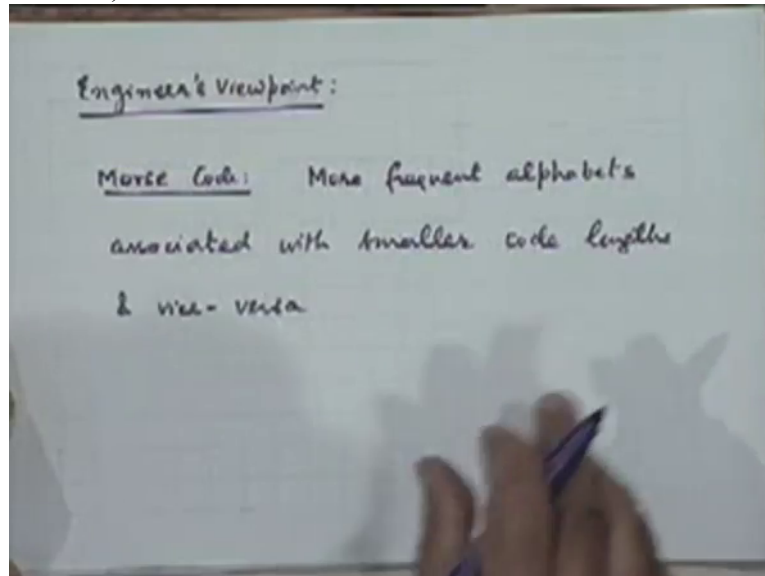 Engineer's Viewpoint:
Morse Code: More frequent alphabets
associated with smaller code lengths
& vice-versa